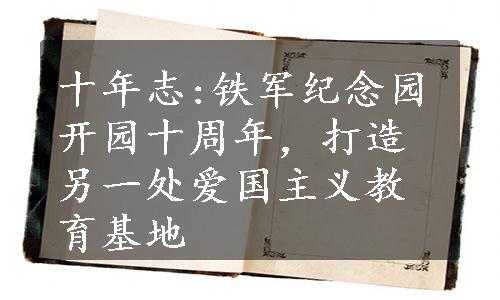 十年志:铁军纪念园
开园十周年，打造
另一处爱国主义教
育基地